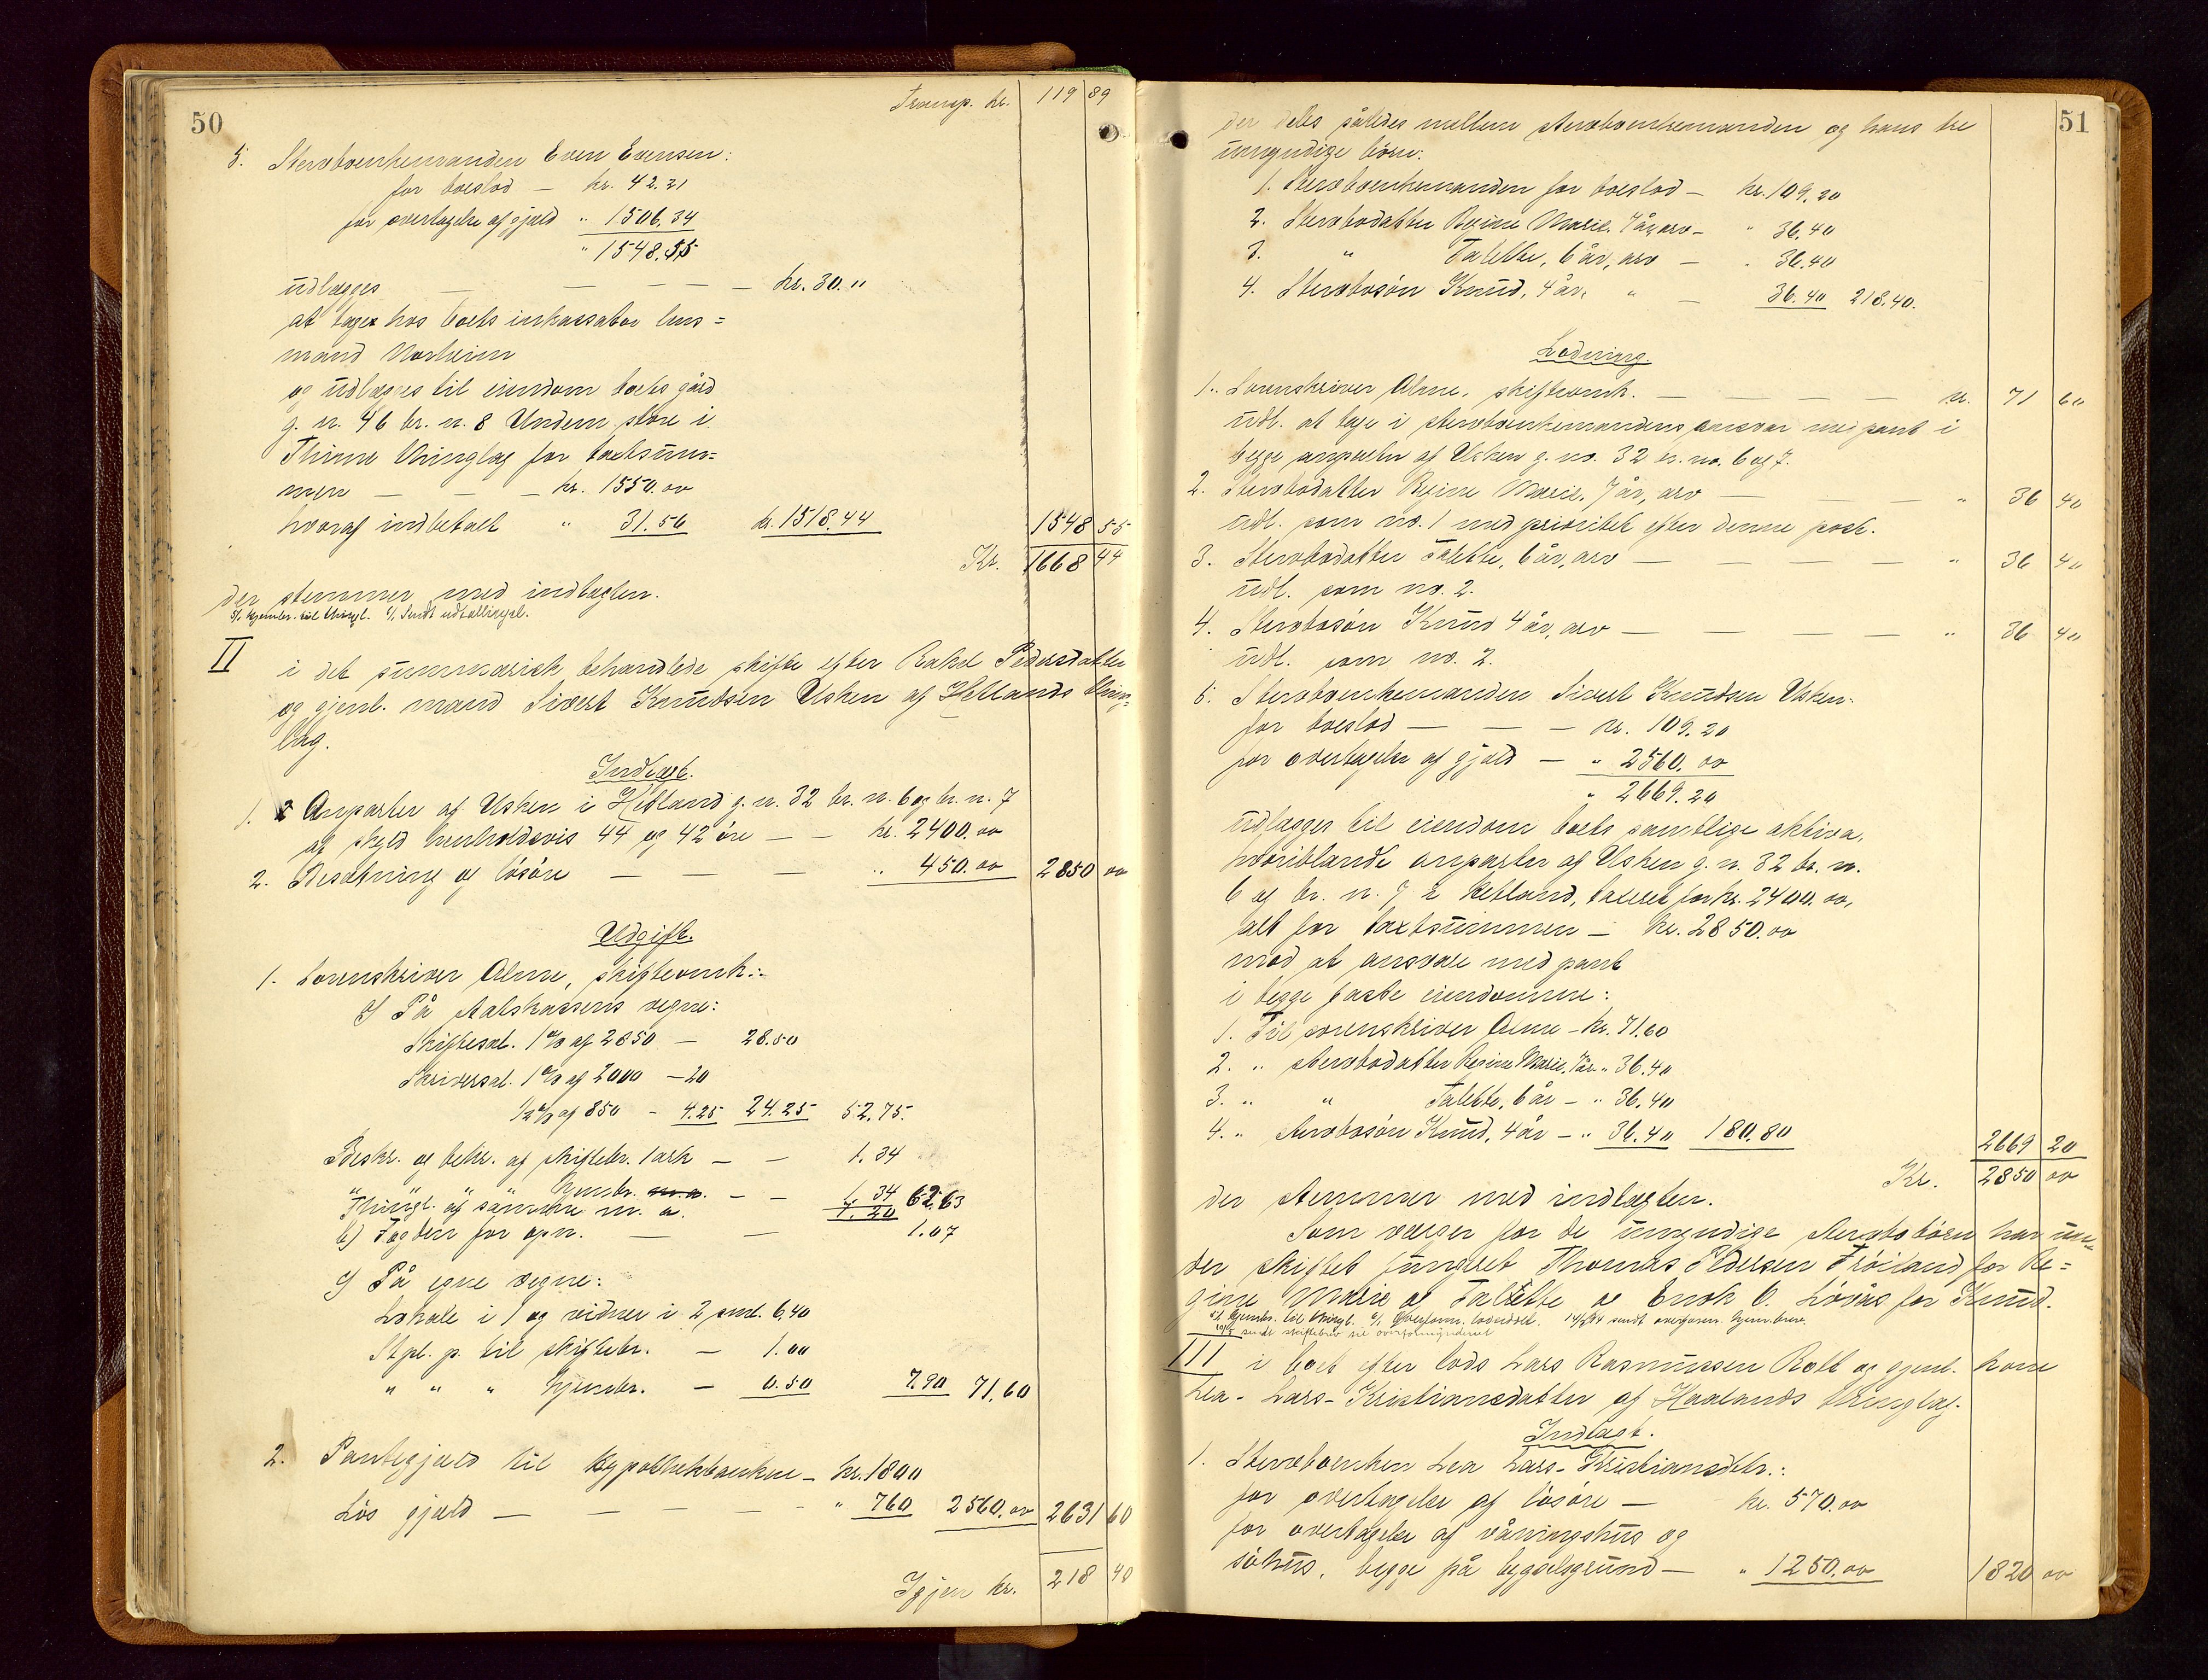 50
Transp. kr. 119 89
5. Stervboenkemanden Even Evensen:
for boeslod — kr. 42.21
for overtagelse af gjæld " 1506.34
" 1548.55
udlægges — — — — kr. 30."
at tage hos boets inkassator lens=
mand Norheim
og udlægges til eiendom boets gård
g. n. 46 br. n. 8 Undem store i
Thime thinglag for taxtsum=
men — — — kr. 1550.00
hvoraf indbetalt " 31.56 kr. 1518.44 1548 55
Kr. 1668 44
der stemmer med indtægten.
hjembr. til thingl. sendt udtællingsl.
II i det summarisk behandlede skifte efter Rakel Pedersdatter
og gjenl. mand Sivert Knudsen Usken af Hetlands thing=
lag.
Indtægt.
1. 2 Anparter af Usken i Hetland g. n. 32 br. n. 6 og br. n. 7
af skyld henholdsvis 44 og 42 øre — — kr. 2400.00
2. Besætning og løsøre — — — " 450.00 2850 00
Udgift.
1. Sorenskriver Olme, skifteomk.:
a) På statskassens vegne:
Skiftesal. 1 % af 2850 — 28.50
Skriversal. 1 % af 2000 — 20
1/2 % af 850 - 4.25 24.25 52.75.
Beskr. og bekr. af skiftebr. 1 ark — — 1.34
" " " hjembr. — — 1.34 62.63
Thingl. af samme m. a. 1.20
b) Fogden for opn. — — 1.07
c) På egne vegne:
Lokale i 1 og vidner i 2 sml. 6.40
Stpl. p. til skiftebr. — 1.00
" " " hjembr. — 0.50 7.90 71.60
2. Pantegjæld til hypothekbanken — kr. 1800
Løs gjæld — — — — " 760 2560.00 2631 60
Igjen kr. 218 40
51
der deles således mellem stervboenkemanden og hans tre
umyndige børn:
1. Stervboenkemanden for boeslod — kr. 109.20
2. Stervbodatter Regine Marie, 7 år, arv — " 36.40
3. " Talette, 6 år, arv — " 36.40
4. Stervbosøn Knud, 4 år, " — 36.40 218.40.
Lodning.
1. Sorenskriver Olme, skifteomk. — — — — kr. 71 60
udl. at tage i stervboenkemandens ansvar med pant i
begge anparter af Usken g. no. 32 br. no. 6 og 7.
2. Stervbodatter Regine Marie, 7 år, arv — — — " 36 40
udl. som no. 1 med prioritet efter denne post.
3. Stervbodatter Talette, 6 år, arv — — — — " 36 40
udl. som no. 2.
4. Stervbosøn Knud 4 år, arv — — — — " 36 40
udl. som no. 2.
5. Stervboenkemanden Sivert Knudsen Usken:
for boeslod — — — kr. 109.20
for overtagelse af gjæld — " 2560.00
" 2669.20
udlægges til eiendom boets samtlige aktiva,
hvoriblandt anparter af Usken g. n. 32 br. n.
6 og br. n. 7 i Hetland, taxeret for kr. 2400.00,
alt for taxtsummen — kr. 2850.00
mod at ansvare med pant
i begge faste eiendomme:
1. Til sorenskriver Olme — kr. 71.60
2. " stervbodatter Regine Marie, 7 år " 36.40
3. " " Talette, 6 år — " 36.40
4. " stervbosøn Knud, 4 år — " 36.40 180.80 2669 20
Kr. 2850 00
der stemmer med indtægten.
Som værger for de umyndige stervbobørn har un=
der skiftet fungeret Thomas Pedersen Frøiland for Re=
gine Marie og Talette og Enok C. Løvås for Knud.
hjembr. til thingl. Overform. sendt overform. hjembrev.
sendt skiftebrev til overformynderiet
III i boet efter lods Lars Rasmussen Rott og gjenl. kone
Lea- Lars- Kristiansdatter af Haalands thinglag.
Indtægt.
1. Stervboenken Lea Lars- Kristiansdtr.:
for overtagelse af løsøre — kr. 570.00
for overtagelse af våningshus og
søhus, begge på bygselsgrund — " 1250.00 1820 00